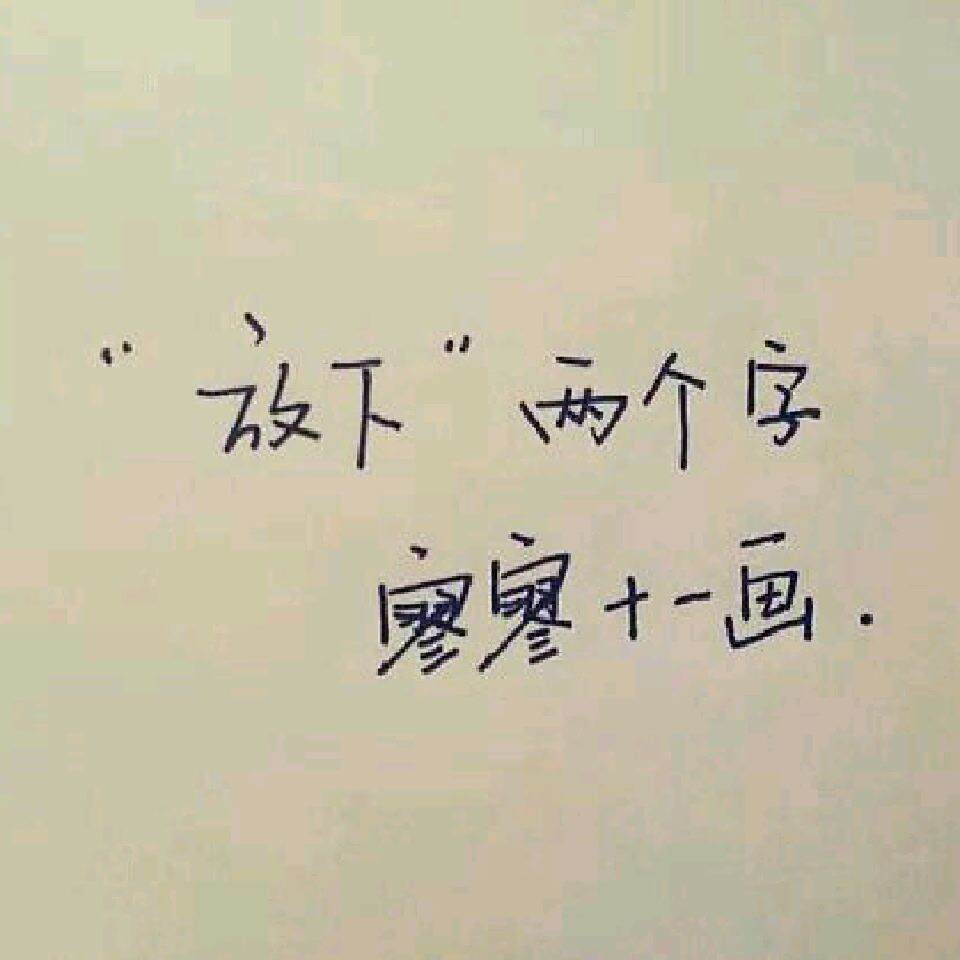 “放下”两个字
寥寥十一画.